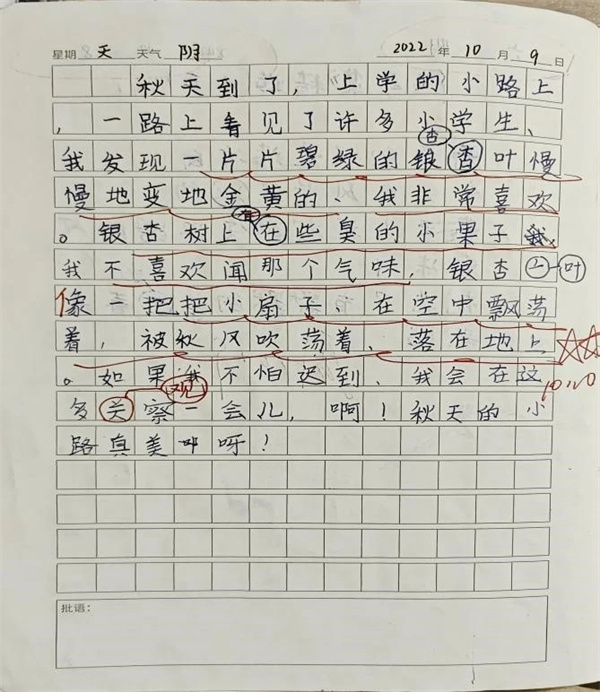 星期 天 天气 阴 2022 年 10 月 9 日
秋天到了，上学的小路上
，一路上看见了许多小学生、
杏
我发现一片片碧绿的银杏叶慢
慢地变地金黄的、我非常喜欢
有
。银杏树上在些臭的小果子我、
我不喜欢闻那个气味，银杏叶
像一把把小扇子、在空中飘荡
着，被秋风吹荡着、落在地上
。如果我不怕迟到、我会在这
10.10
观
多关察一会儿，啊！秋天的小
路真美呀！
批语：